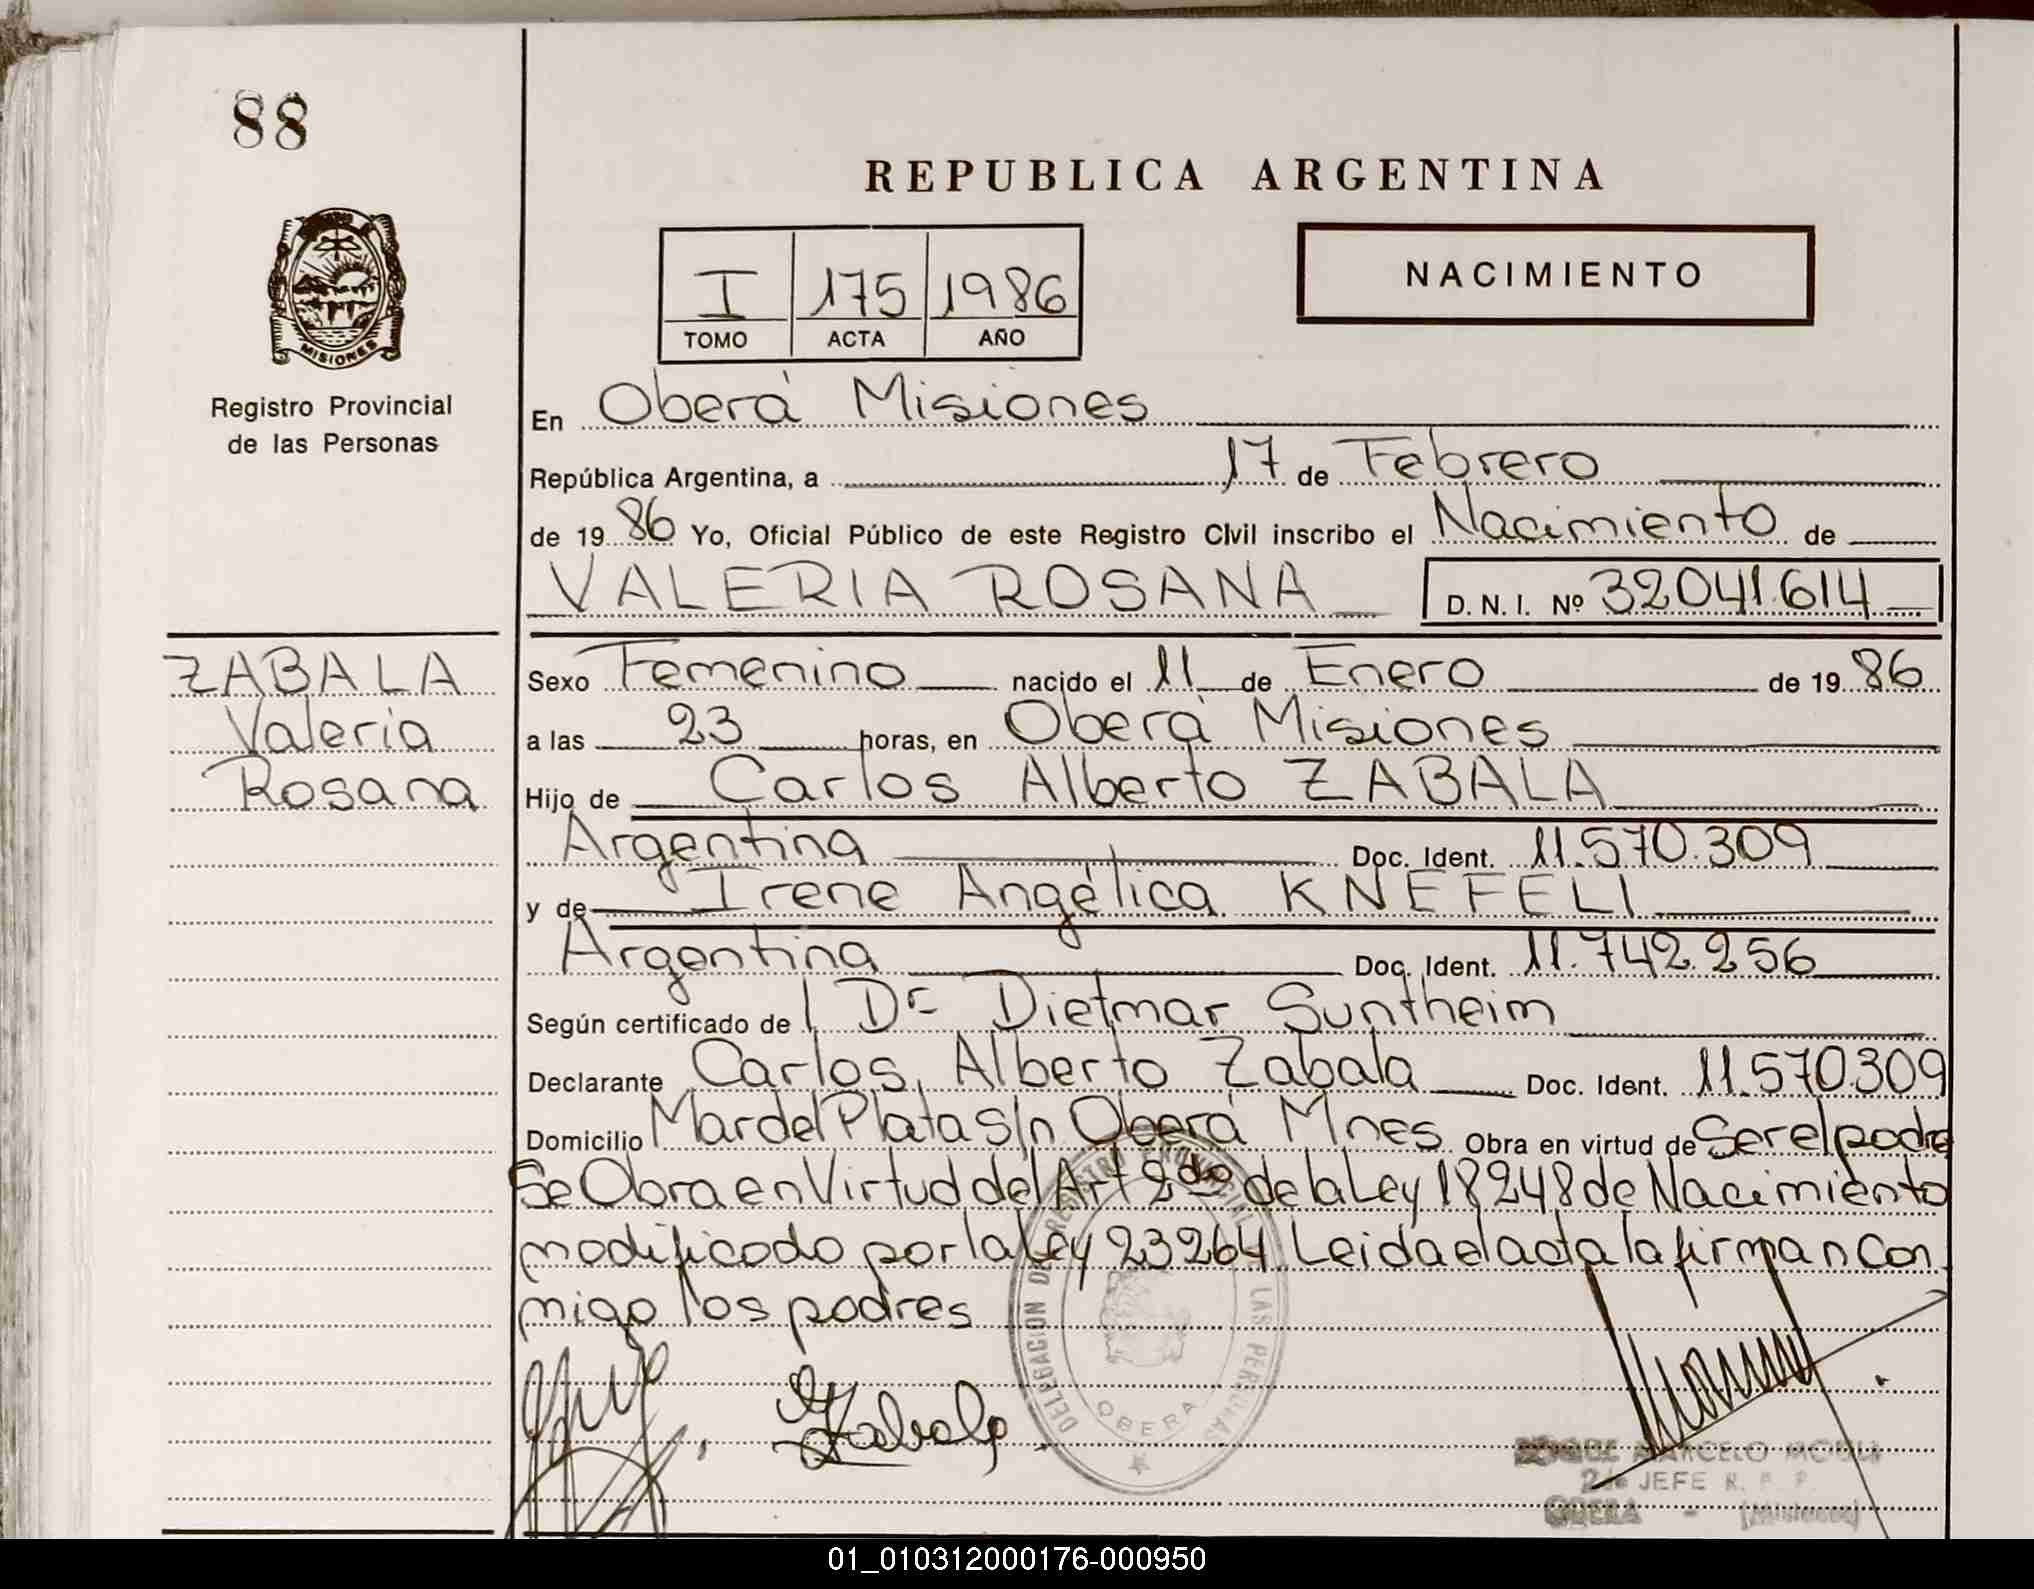 88
REPUBLICA ARGENTINA
I 175 1986
TOMO ACTA AÑO
NACIMIENTO
MISIONES
Registro Provincial
de las Personas
En Oberá Misiones
República Argentina, a 17 de Febrero
de 1986 Yo, Oficial Público de este Registro Civil inscribo el Nacimiento de
VALERIA ROSANA D. N. I. Nº 32041.614
ZABALA
Valeria
Rosana
Sexo Femenino nacido el 11 de Enero de 1986
a las 23 horas, en Oberá Misiones
Hijo de Carlos Alberto ZABALA
Argentina Doc. Ident. 11.570.309
y de Irene Angélica KNEFELI
Argentina Doc. Ident. 11.742.256
Según certificado de Dr Dietmar Suntheim
Declarante Carlos Alberto Zabala Doc. Ident. 11.570.309
Domicilio Mar del Plata S/n Oberá Mnes Obra en virtud de Ser el padre
Se Obra en Virtud del Art 2do de la Ley 18248 de Nacimiento
modificado por la Ley 23264 Leida el acta la firman con
migo los padres
Zabala
DELEGACION DEL REGISTRO PROVINCIAL DE LAS PERSONAS
OBERA
MARCELO
2do JEFE R. P. P.
OBERA - (Misiones)
01_010312000176-000950